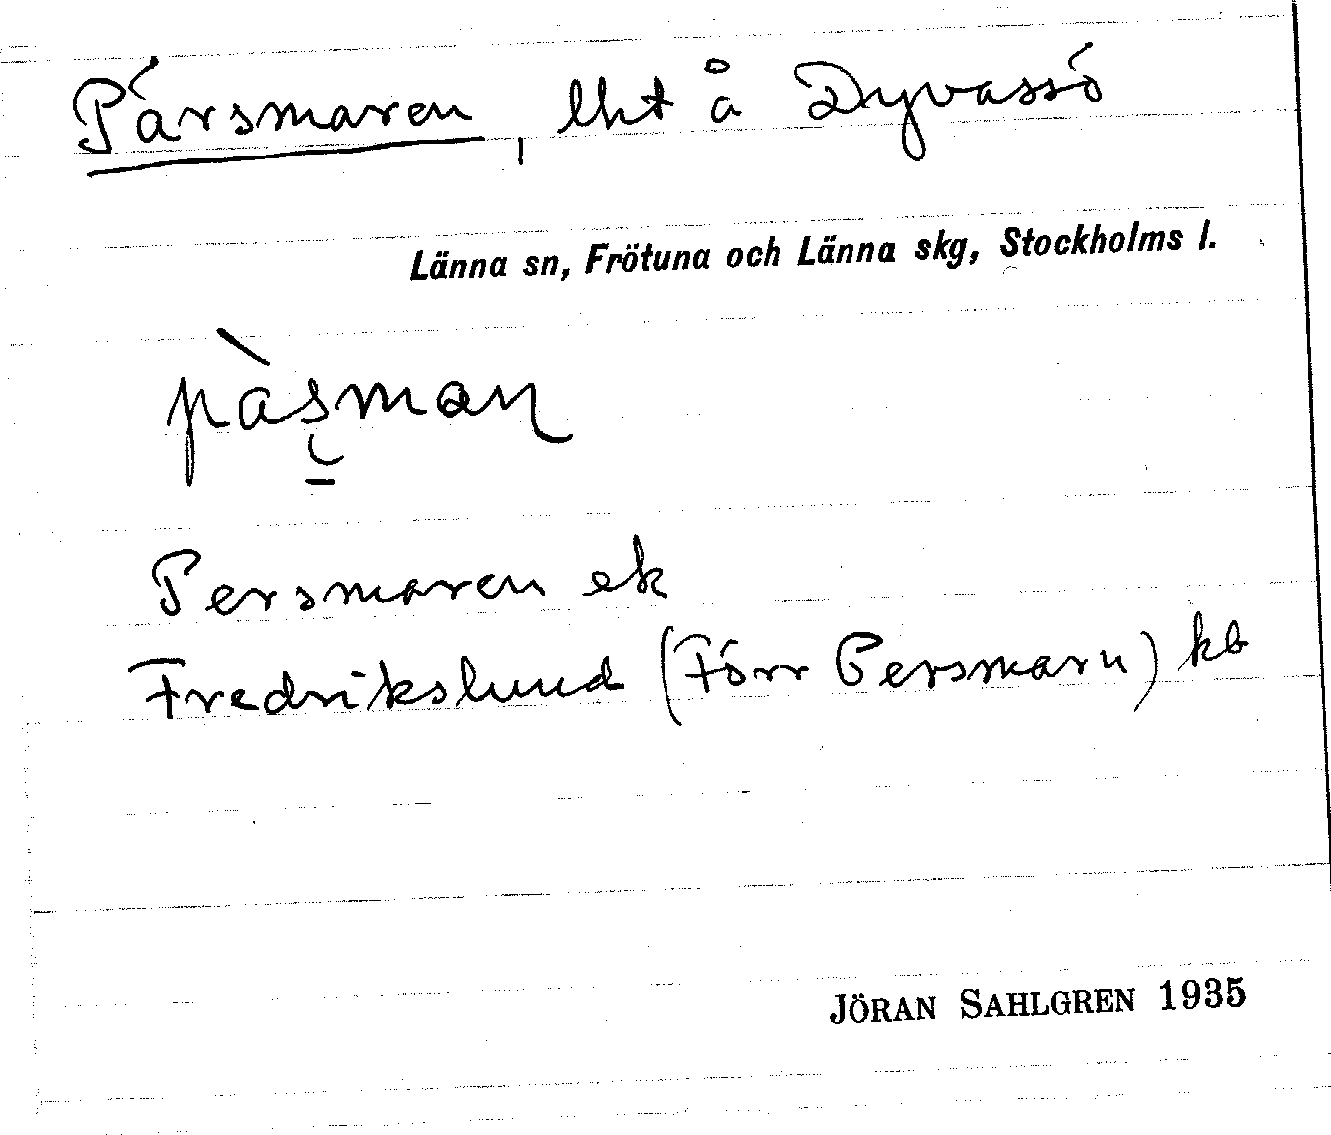 Pärsmaren, lht å Dyvassö
Länna sn, Frötuna och Länna skg, Stockholms l.
Persmaren ek
Fredrikslund (Förr Persmarn) kb
JÖRAN SAHLGREN 1935